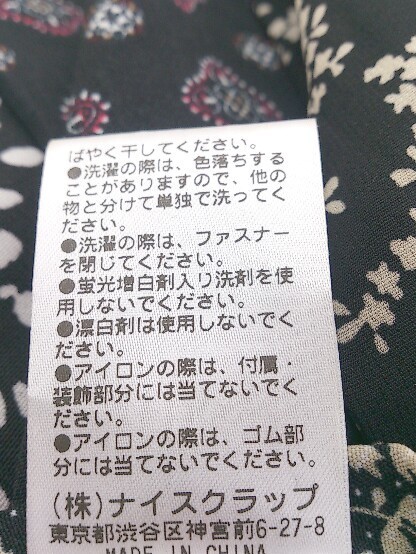 ばやく干してください。
●洗濯の際は、色落ちする
ことがありますので、他の
物と分けて単独で洗ってく
ださい。
●洗濯の際は、ファスナー
を閉じてください。
●蛍光増白剤入り洗剤を使
用しないでください。
●漂白剤は使用しないでく
ださい。
●アイロンの際は、付属・
装飾部分には当てないでく
ださい。
●アイロンの際は、ゴム部
分には当てないでください。
(株)ナイスクラップ
東京都渋谷区神宮前6-27-8
MADE IN CHINA